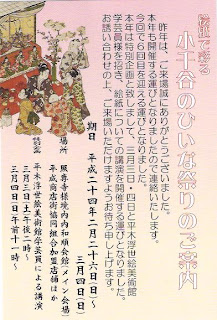 絵紙で彩る
小千谷のひいな祭りのご案内
昨年は、ご来場誠にありがとうございました。
本年も開催する運びとなりましたので連絡いたします。
今回で6回目を迎える運びとなりました。
本年は特別企画と致しまして、三月三日・四日と平木浮世絵美術館
学芸員様を招き、絵紙についての講演を開催する運びとなりました。
お誘い合わせの上、ご来場いただけますようお待ち申し上げます。
期日 平成二十四年二月二十六日(日)〜
三月四日(日)
場所 照専寺様境内和順会館(メイン会場)
平成商店街協同組合加盟店舗ほか
講演 平木浮世絵美術館学芸員による講演
三月三日(土)午後二時〜
三月四日(日)午前十一時〜